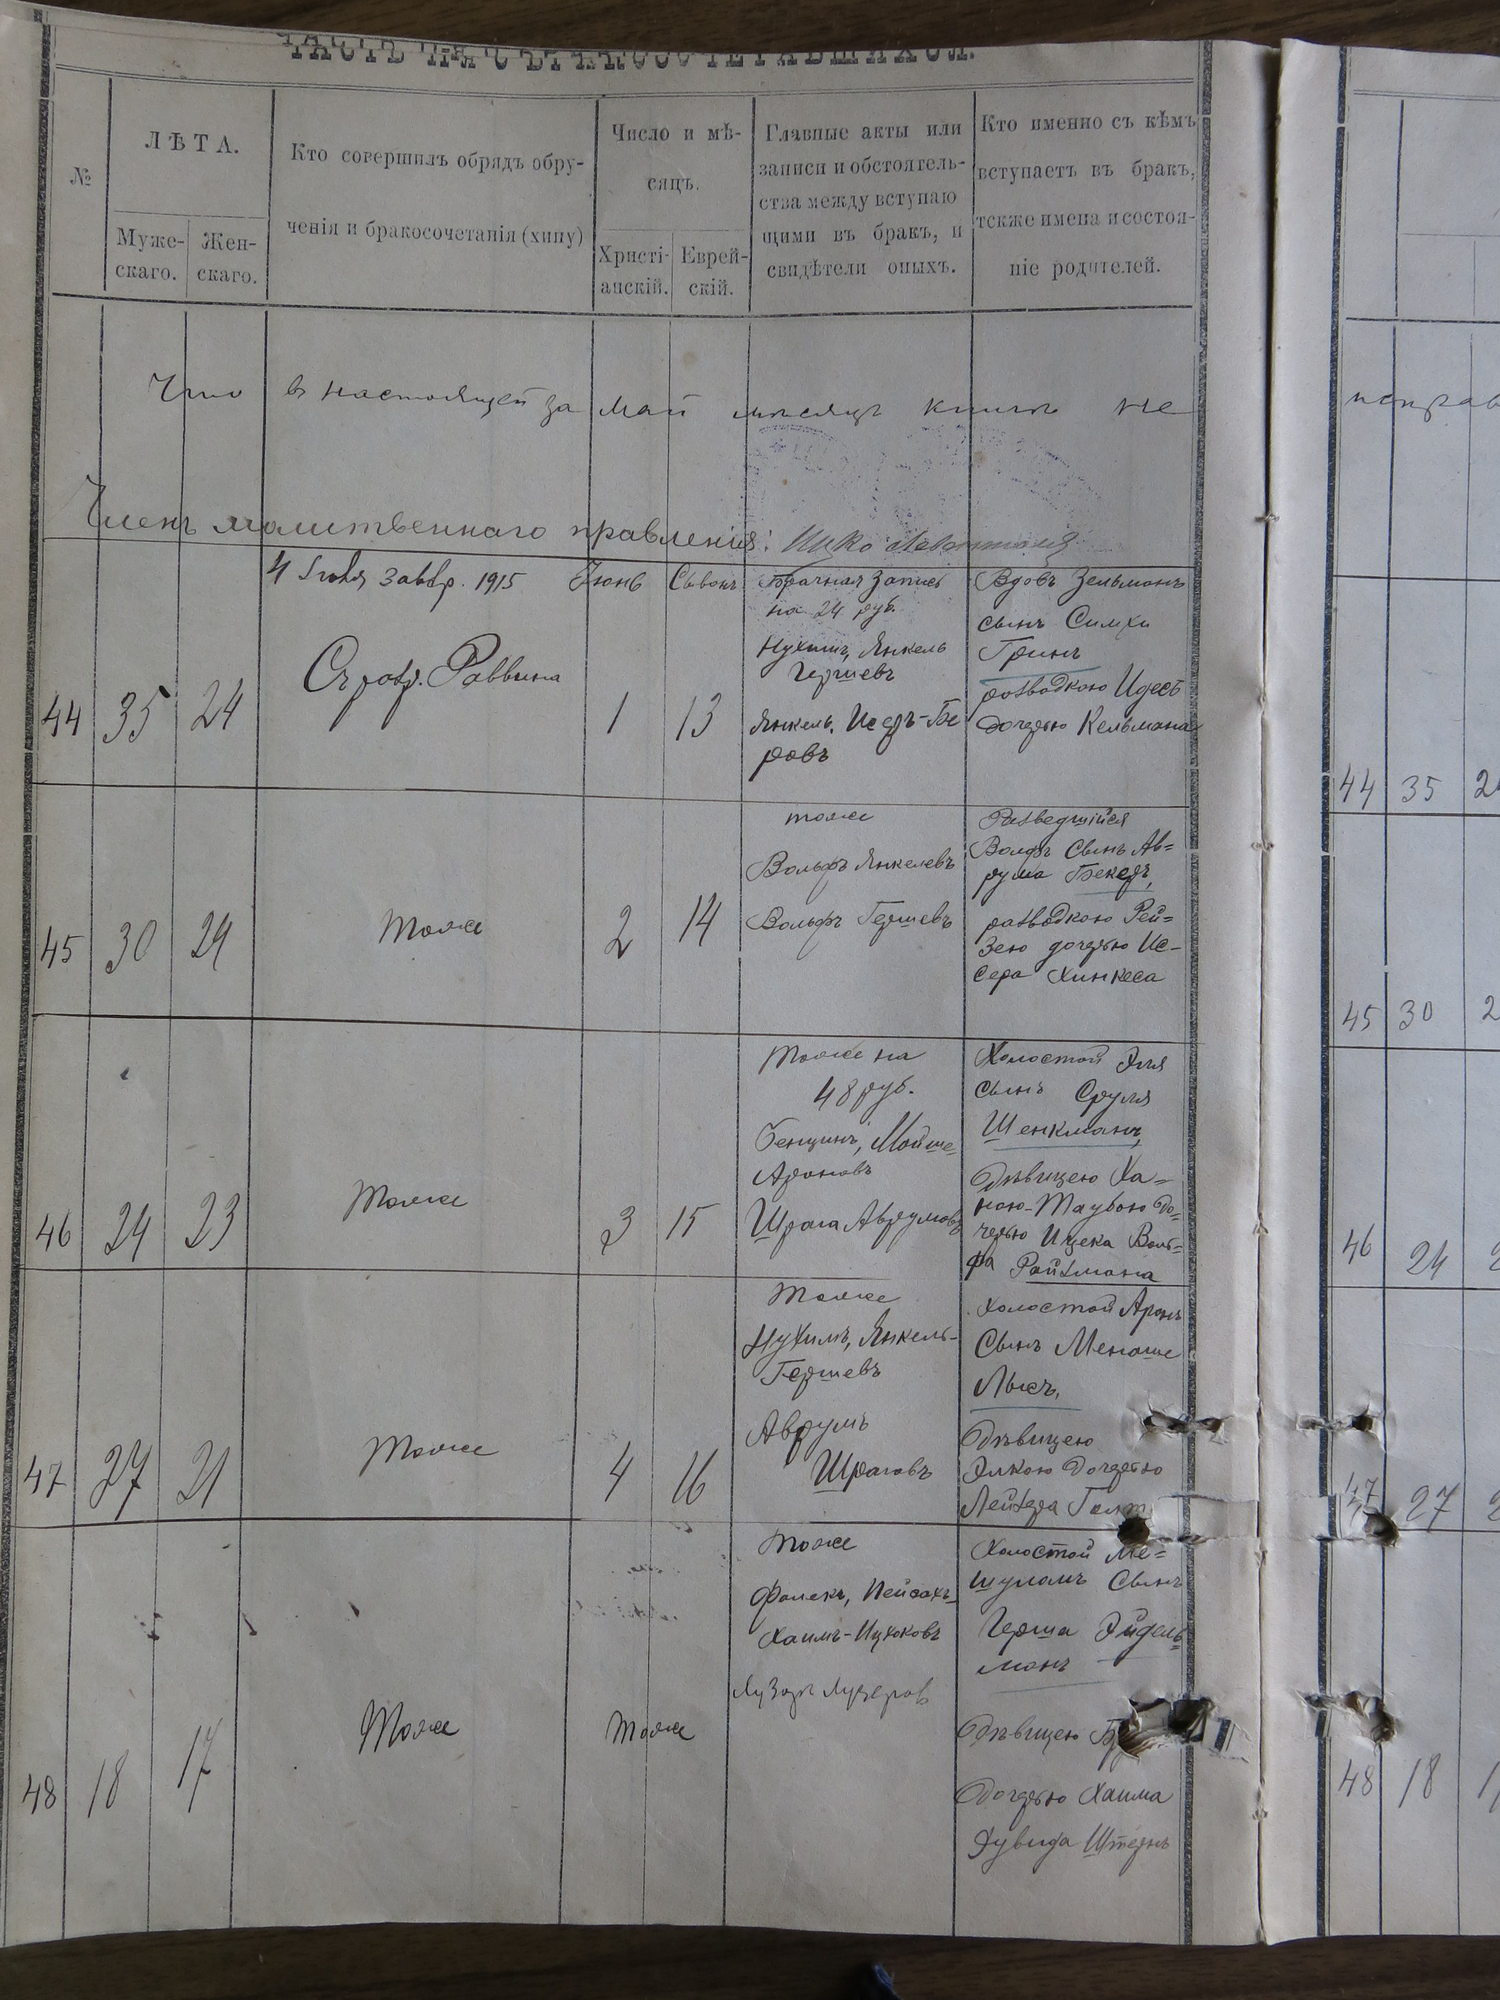 ЧАСТЬ II-Я О БРАКОСОЧЕТАВШИХСЯ.
№
ЛѢТА.
Муже-
скаго.
Жен-
скаго.
Кто совершилъ обрядъ обру-
ченія и бракосочетанія (хипу)
Число и мѣ-
сяцъ.
Христі-
анскій.
Еврей-
скій.
Главные акты или
записи и обстоятель-
ства между вступаю
щими въ бракъ, и
свидѣтели оныхъ.
Кто именно съ кѣмъ
вступаетъ въ бракъ,
также имена и состоя-
ніе родителей.
Что в настоящей за май мѣсяцъ книгѣ не
исправ
Членъ молитвеннаго правленія:
4 Іюля 1915
Іюнь
Сывонъ
44
35
24
Раввина
1
13
Брачная запись
на 24 руб.
Нухимъ, Янкель
Гершевъ
Янкель, Исеръ-Бе
ровъ
Вдовъ Зельманъ
сынъ Симхи
Гринъ
разводкою Идесъ
дочерью Кельмана
44 35
45
30
24
Тоже
2
14
тоже
Вольфъ Янкелевъ
Вольфъ Гершевъ
Разведшійся
Волфъ сынъ Ав=
рума Бекеръ,
разводкою Рей=
зею дочерью Ис-
сера Хинкеса
45 30
46
24
23
Тоже
3
15
Тоже на
48 руб.
Бенционъ, Мойше=
Ароновъ
Шрага Аврумовъ
Холостой Эля
сынъ Сруля
Шенкманъ,
дѣвицею Ха=
ною-Таубою до=
черью Ицека Воль=
фа Райзмана
46 24
47
27
21
Тоже
4
16
Тоже
Нухимъ, Янкель-
Гершевъ
Аврумъ
Шраговъ
Холостой Аронъ
сынъ Менаше
Лысъ,
дѣвицею
Элкою дочерью
Лейзера
47 27
48
18
17
Тоже
Тоже
Тоже
Фалекъ, Пейсахъ-
Хаимъ-Ицхоковъ
Лузеръ Лузеров
Холостой Ме=
шуламъ сынъ
Герша Эйдель=
манъ
дѣвицею
дочерью Хаима
Дувида Штернъ
48 18